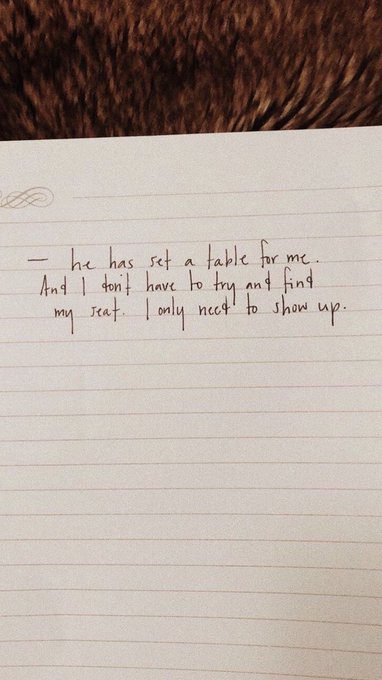 — he has set a table for me.
And I don't have to try and find
my seat. I only need to show up.